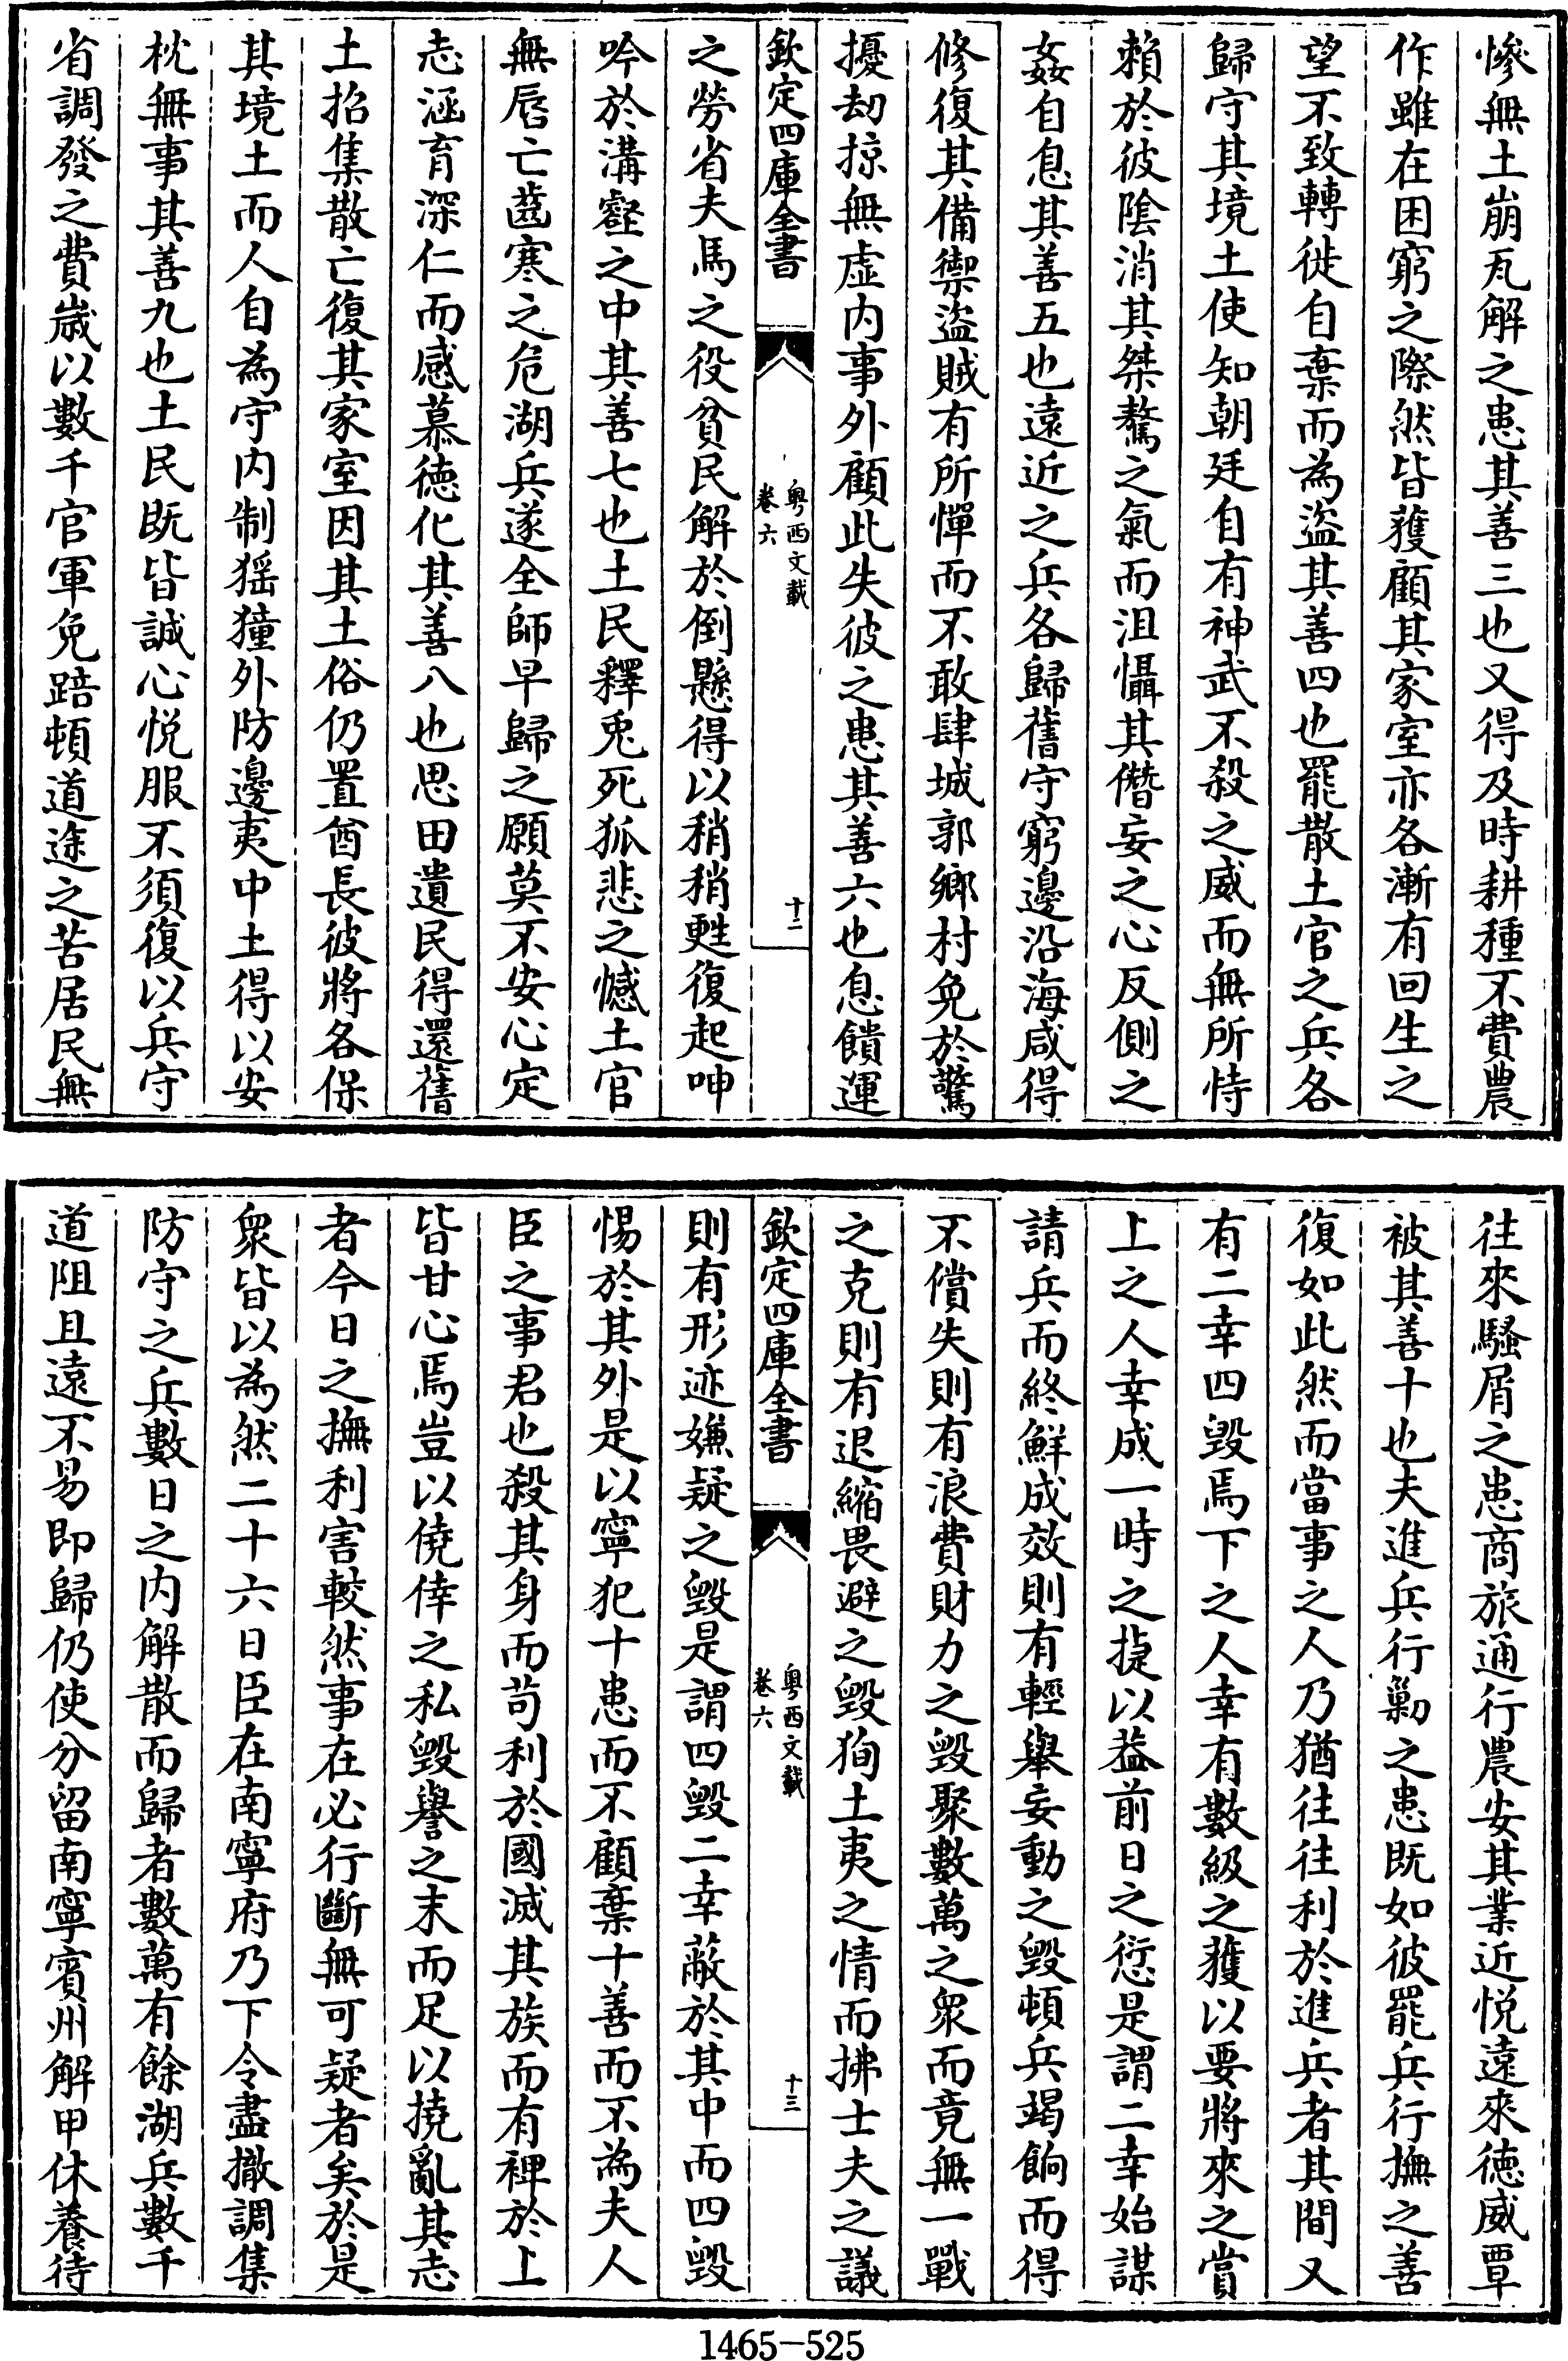 慘無土崩瓦解之患其善三也又得及時耕種不費農
作雖在困窮之際然皆獲顧其家室亦各漸有回生之
望不致轉徙自棄而為盜其善四也罷散土官之兵各
歸守其境土使知朝廷自有神武不殺之威而無所恃
賴於彼陰消其桀驁之氣而沮懾其僭妄之心反側之
姦自息其善五也遠近之兵各歸舊守窮邊沿海咸得
修復其備禦盜賊有所憚而不敢肆城郭鄉村免於驚
擾刼掠無虛内事外顧此失彼之患其善六也息饋運
欽定四庫全書
粤西文載
卷六
十二
之勞省夫馬之役貧民解於倒懸得以稍稍甦復起呻
吟於溝壑之中其善七也土民釋兎死狐悲之憾土官
無唇亡齒寒之危湖兵遂全師早歸之願莫不安心定
志涵育深仁而感慕德化其善八也思田遺民得還舊
土招集散亡復其家室因其土俗仍置酋長彼將各保
其境土而人自為守内制猺獞外防邊夷中土得以安
枕無事其善九也土民既皆誠心悦服不須復以兵守
省調發之費歲以數千官軍免踣頓道途之苦居民無
往來騷屑之患商旅通行農安其業近悦遠來德威覃
被其善十也夫進兵行勦之患既如彼罷兵行撫之善
復如此然而當事之人乃猶往往利於進兵者其間又
有二幸四毁焉下之人幸有數級之獲以要將來之賞
上之人幸成一時之捷以蓋前日之愆是謂二幸始謀
請兵而終鮮成效則有輕舉妄動之毁頓兵竭餉而得
不償失則有浪費財力之毁聚數萬之衆而竟無一戰
之克則有退縮畏避之毁狥土夷之情而拂士夫之議
欽定四庫全書
粤西文載
卷六
十三
則有形迹嫌疑之毁是謂四毁二幸蔽於其中而四毁
惕於其外是以寧犯十患而不顧棄十善而不為夫人
臣之事君也殺其身而苟利於國滅其族而有裨於上
皆甘心焉豈以僥倖之私毁譽之末而足以撓亂其志
者今日之撫利害較然事在必行斷無可疑者矣於是
衆皆以為然二十六日臣在南寧府乃下令盡撤調集
防守之兵數日之内解散而歸者數萬有餘湖兵數千
道阻且遠不易即歸仍使分留南寧賓州解甲休養待
1465-525